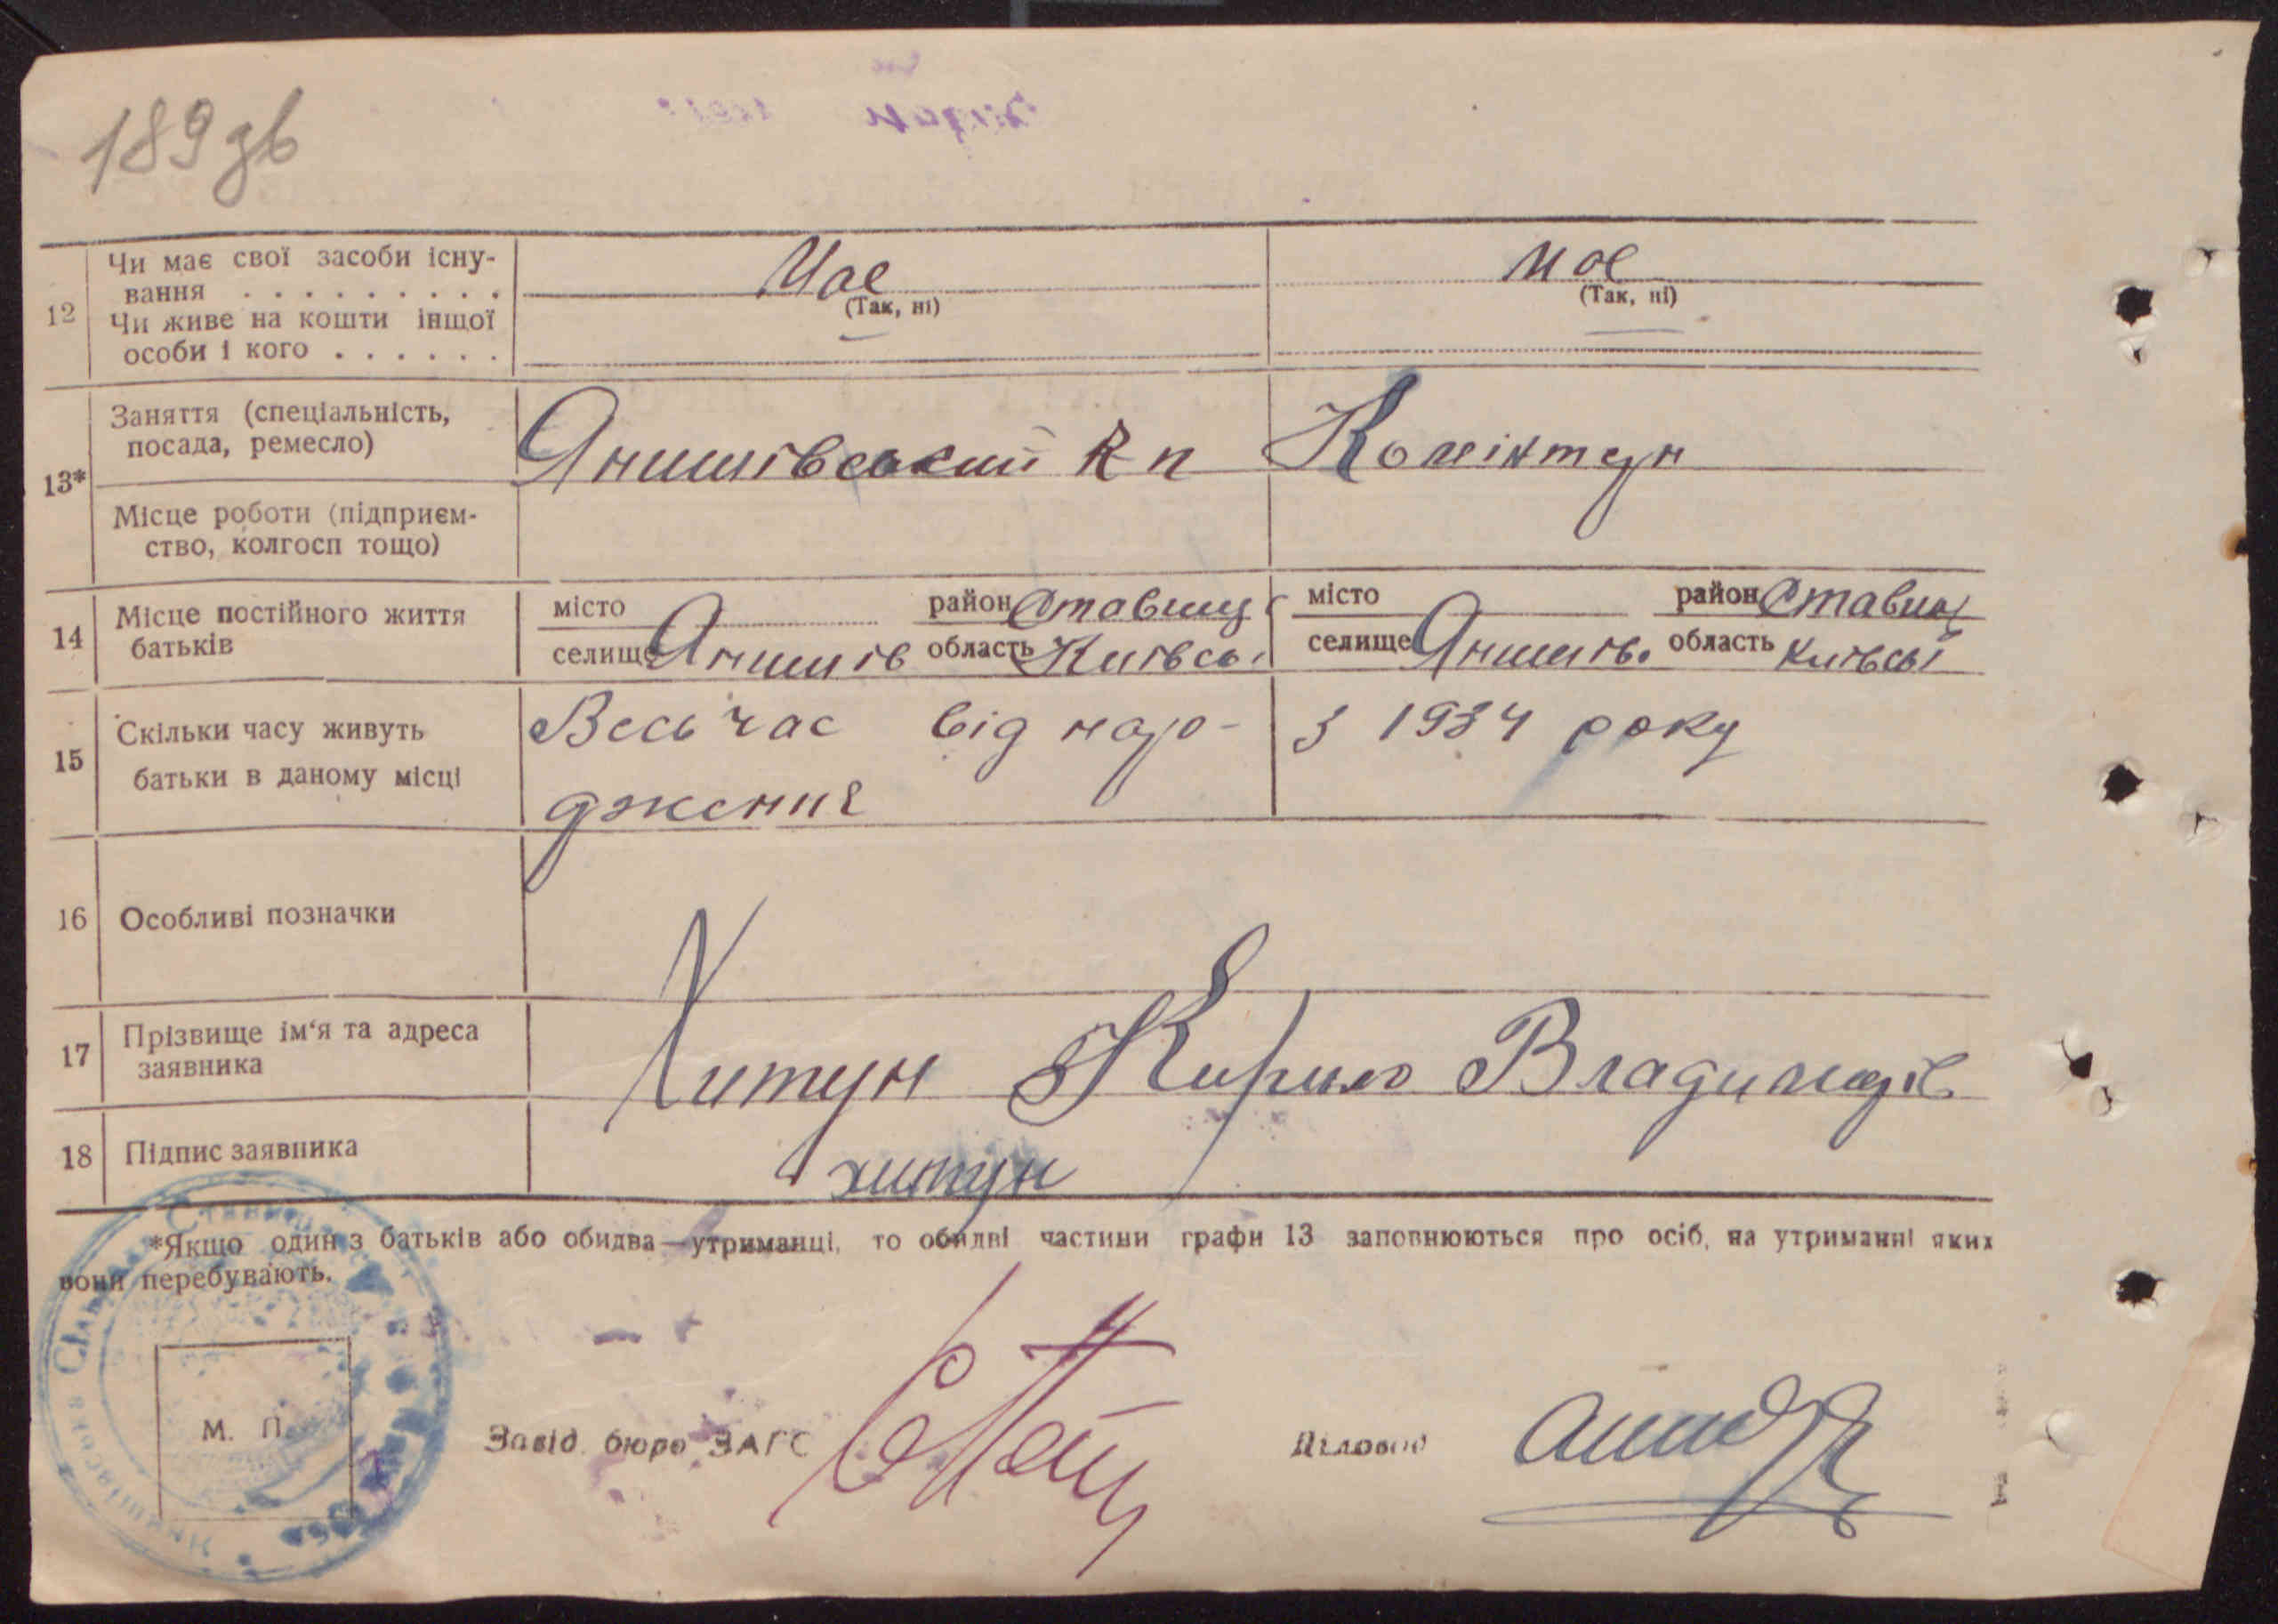 189зв
12 Чи має свої засоби існу-
вання . . . . . . . . . Має Має
(Так, ні) (Так, ні)
Чи живе на кошти іншої
особи і кого . . . . . . — —
13* Заняття (спеціальність,
посада, ремесло) Янишівський
Місце роботи (підприєм-
ство, колгосп тощо)
14 Місце постійного життя
батьків
місто район Ставищ місто район Ставищ
селище Янишів область Київсь. селище Янишів. область Київсь
15 Скільки часу живуть
батьки в даному місці
Весь час від наро- з 1934 року
дження
16 Особливі позначки
17 Прізвище ім‘я та адреса
заявника
Хитун Кирило Владимирів
18 Підпис заявника хитун
*Якщо один з батьків або обидва—утриманці, то обидві частини графи 13 заповнюються про осіб, на утриманні яких
вони перебувають.
М. П.
Завід. бюро ЗАГС Діловод